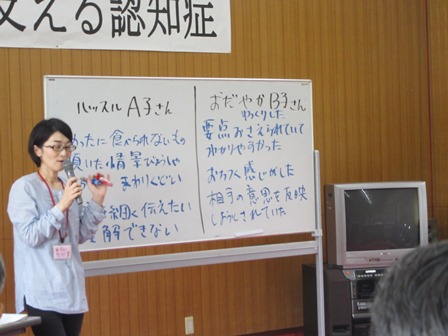 支える認知症
ハッスルA子さん
ったに食べられないもの
情景びょうしゃ
まわりくどい
細く伝えたい
解できない
おだやかB子さん
ゆっくりした
要点おさえられていて
わかりやすかった
おちつく感じがした
相手の意思を反映
しようとされていた